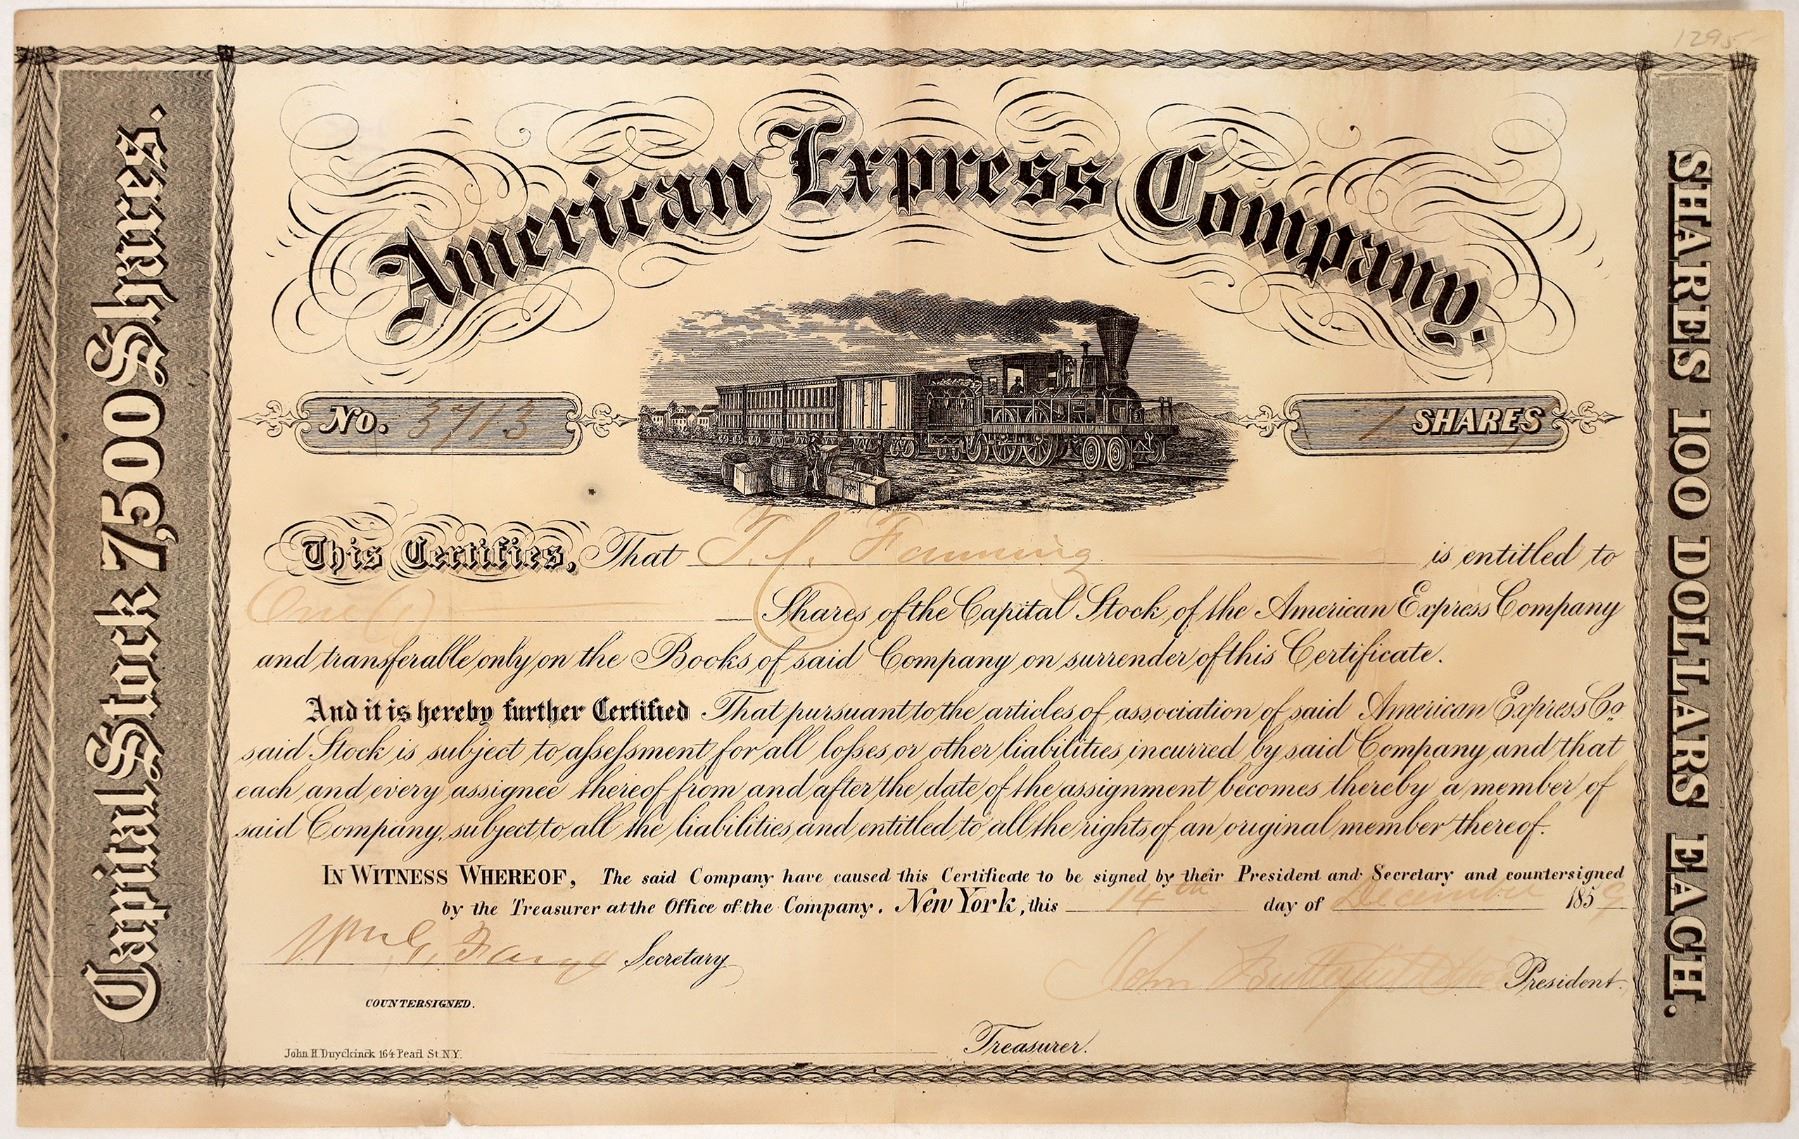 1295
American Express Company.
Capital Stock 7,500 Shares.
SHARES 100 DOLLARS EACH.
No. 3713
1 SHARES
This Certifies, That T. C. Fanning is entitled to
One (1) Shares of the Capital Stock of the American Express Company
and transferable only on the Books of said Company on surrender of this Certificate.
And it is hereby further Certified That pursuant to the articles of association of said American Express Co
said Stock is subject to assessment for all losses or other liabilities incurred by said Company and that
each and every assignee thereof from and after the date of the assignment becomes thereby a member of
said Company, subject to all the liabilities and entitled to all the rights of an original member thereof.
IN WITNESS WHEREOF, The said Company have caused this Certificate to be signed by their President and Secretary and countersigned
by the Treasurer at the Office of the Company. New York, this 14th day of December 1859
Wm G. Fargo Secretary
John Butterfield President.
COUNTERSIGNED.
Treasurer.
John H. Duyckinck 164 Pearl St. N.Y.